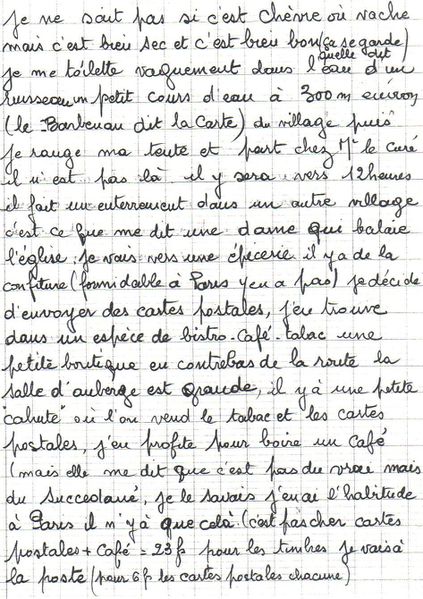 je ne sait pas si c'est chèvre où vache
mais c'est bien sec et c'est bien bon (ça se garde)
quelle dit
je me toilette vaguement dans l'eau d'un
ruisseau un petit cours d'eau à 300m environ
(le Barbenau dit la Carte) du village puis
je range ma tente et part chez Mr le curé
il n'est pas là il y sera vers 12heures
il fait un enterrement dans un autre village
c'est ce que me dit une dame qui balaie
l'église. je vais vers une épicerie il y a de la
confiture (formidable à Paris y en a pas) je décide
d'envoyer des cartes postales, j'en trouve
dans un espèce de bistro-café-tabac une
petite boutique en contrebas de la route la
salle d'auberge est grande, il y à une petite
"cahute" où l'on vend le tabac et les cartes
postales, j'en profite pour boire un café
(mais elle me dit que c'est pas du vrai mais
du succedané, je le savais j'en ai l'habitude
à Paris il n'y à que celà. (c'est pas cher cartes
postales + café = 23f pour les timbres je vais à
la poste (pour 6f les cartes postales chacune)